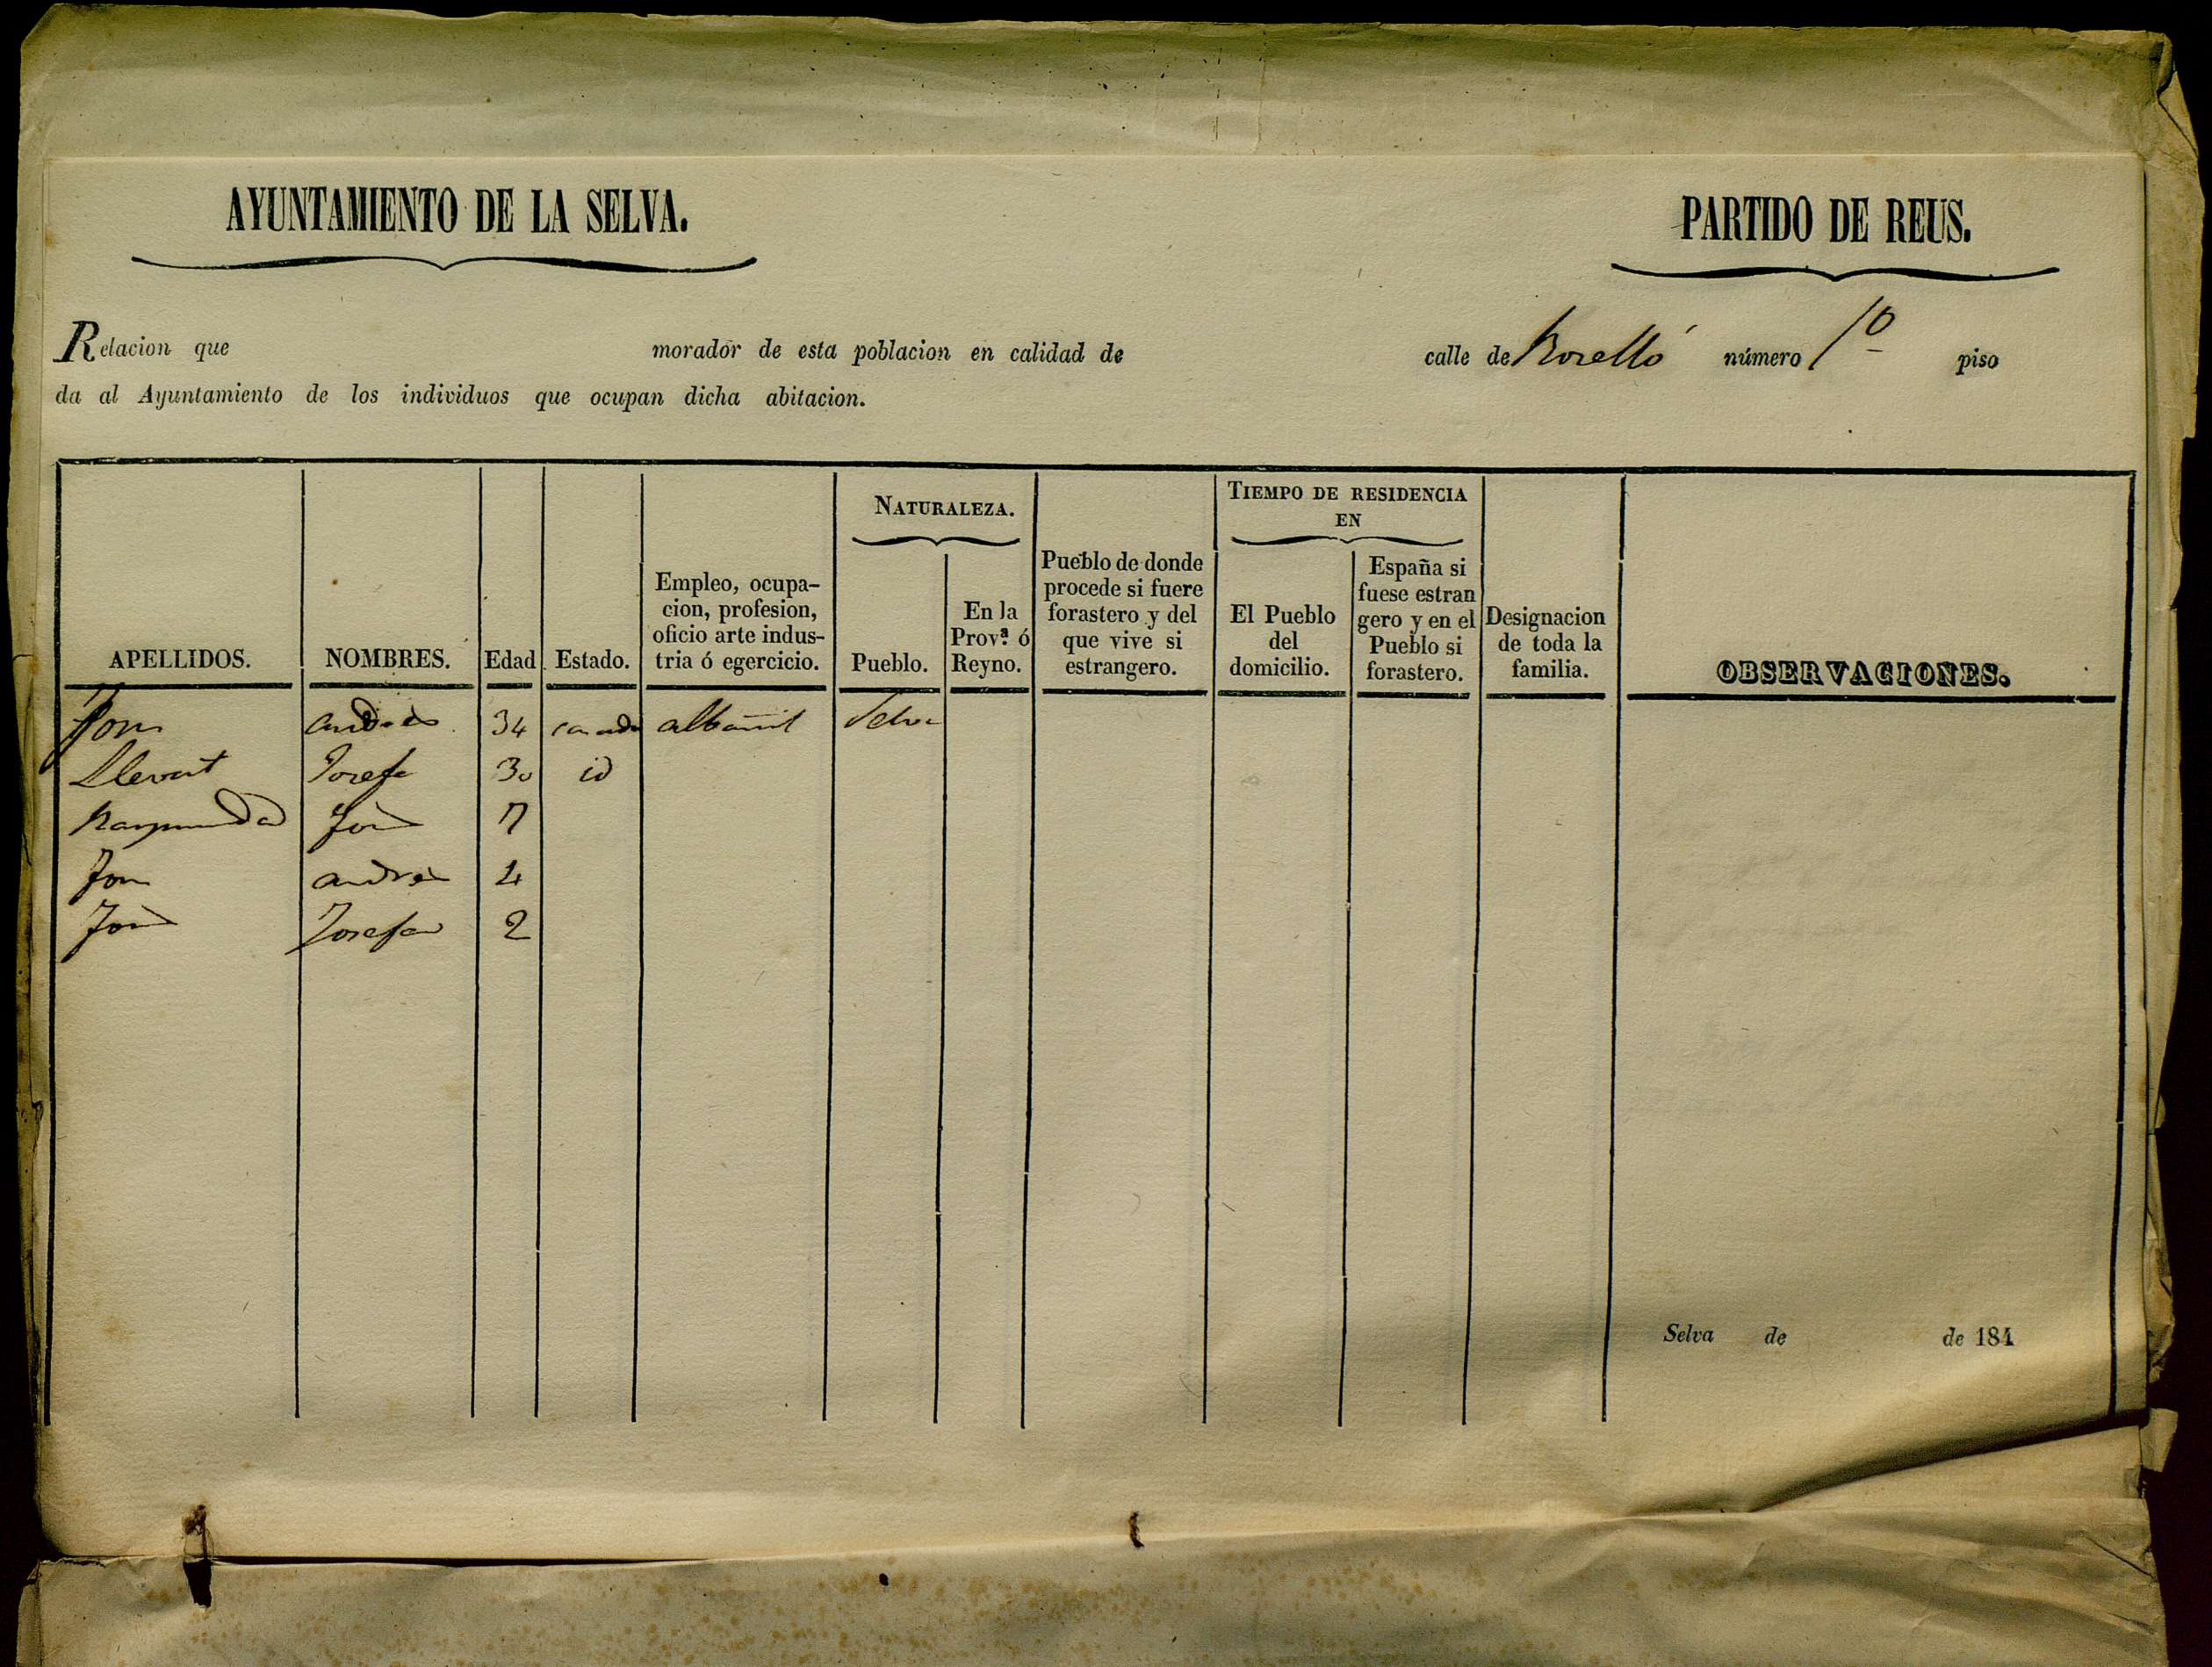 AYUNTAMIENTO DE LA SELVA.
PARTIDO DE REUS.
Relacion que morador de esta poblacion en calidad de calle de Roselló número 10 piso
da al Ayuntamiento de los individuos que ocupan dicha abitacion.
APELLIDOS.
NOMBRES.
Edad
Estado.
Empleo, ocupa-
cion, profesion,
oficio arte indus-
tria ó egercicio.
NATURALEZA.
Pueblo.
En la
Prov.ª ó
Reyno.
Pueblo de donde
procede si fuere
forastero y del
que vive si
estrangero.
TIEMPO DE RESIDENCIA
EN
El Pueblo
del
domicilio.
España si
fuese estran
gero y en el
Pueblo si
forastero.
Designacion
de toda la
familia.
OBSERVACIONES.
andres 34 casado albañil Selva
Llevat Josefa 30 id
Raymunda 7
andres 4
Josefa 2
Selva de de 184